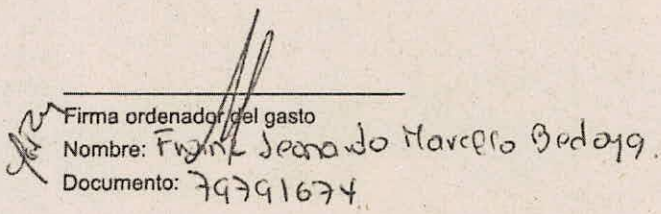 Firma ordenador del gasto
Nombre: Frank Leonardo Marcelo Bedoya.
Documento: 79791674